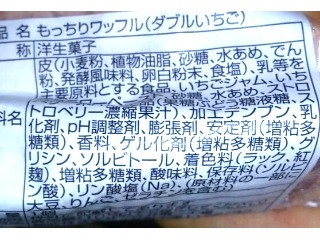 品名 もっちりワッフル(ダブルいちご)
称 洋生菓子
皮(小麦粉、植物油脂、砂糖、水あめ、でん
粉、発酵風味料、卵白粉末、食塩)、乳等を
主要原料とする食品、いちごジャム、いちご
糖、水あめ、ストロ
料名 トロベリー濃縮果汁)、加工デンプン、乳
化剤、pH調整剤、膨張剤、安定剤(増粘多
糖類)、香料、ゲル化剤(増粘多糖類)、グ
リシン、ソルビトール、着色料(ラック、紅
麹)、増粘多糖類、酸味料、保存料(ソルビ
ン酸)、リン酸塩(Na)、(原材料の一部に
大豆、りんご、ゼラチンを含む)
1個